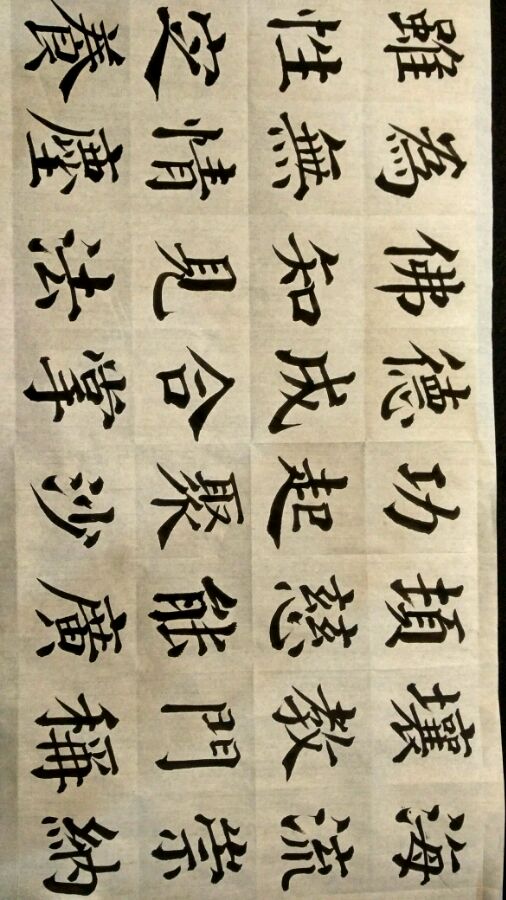 雖為佛德功頓壤海
性無知成起慈教流
安情見合聚能門崇
養塵法掌沙廣稱納